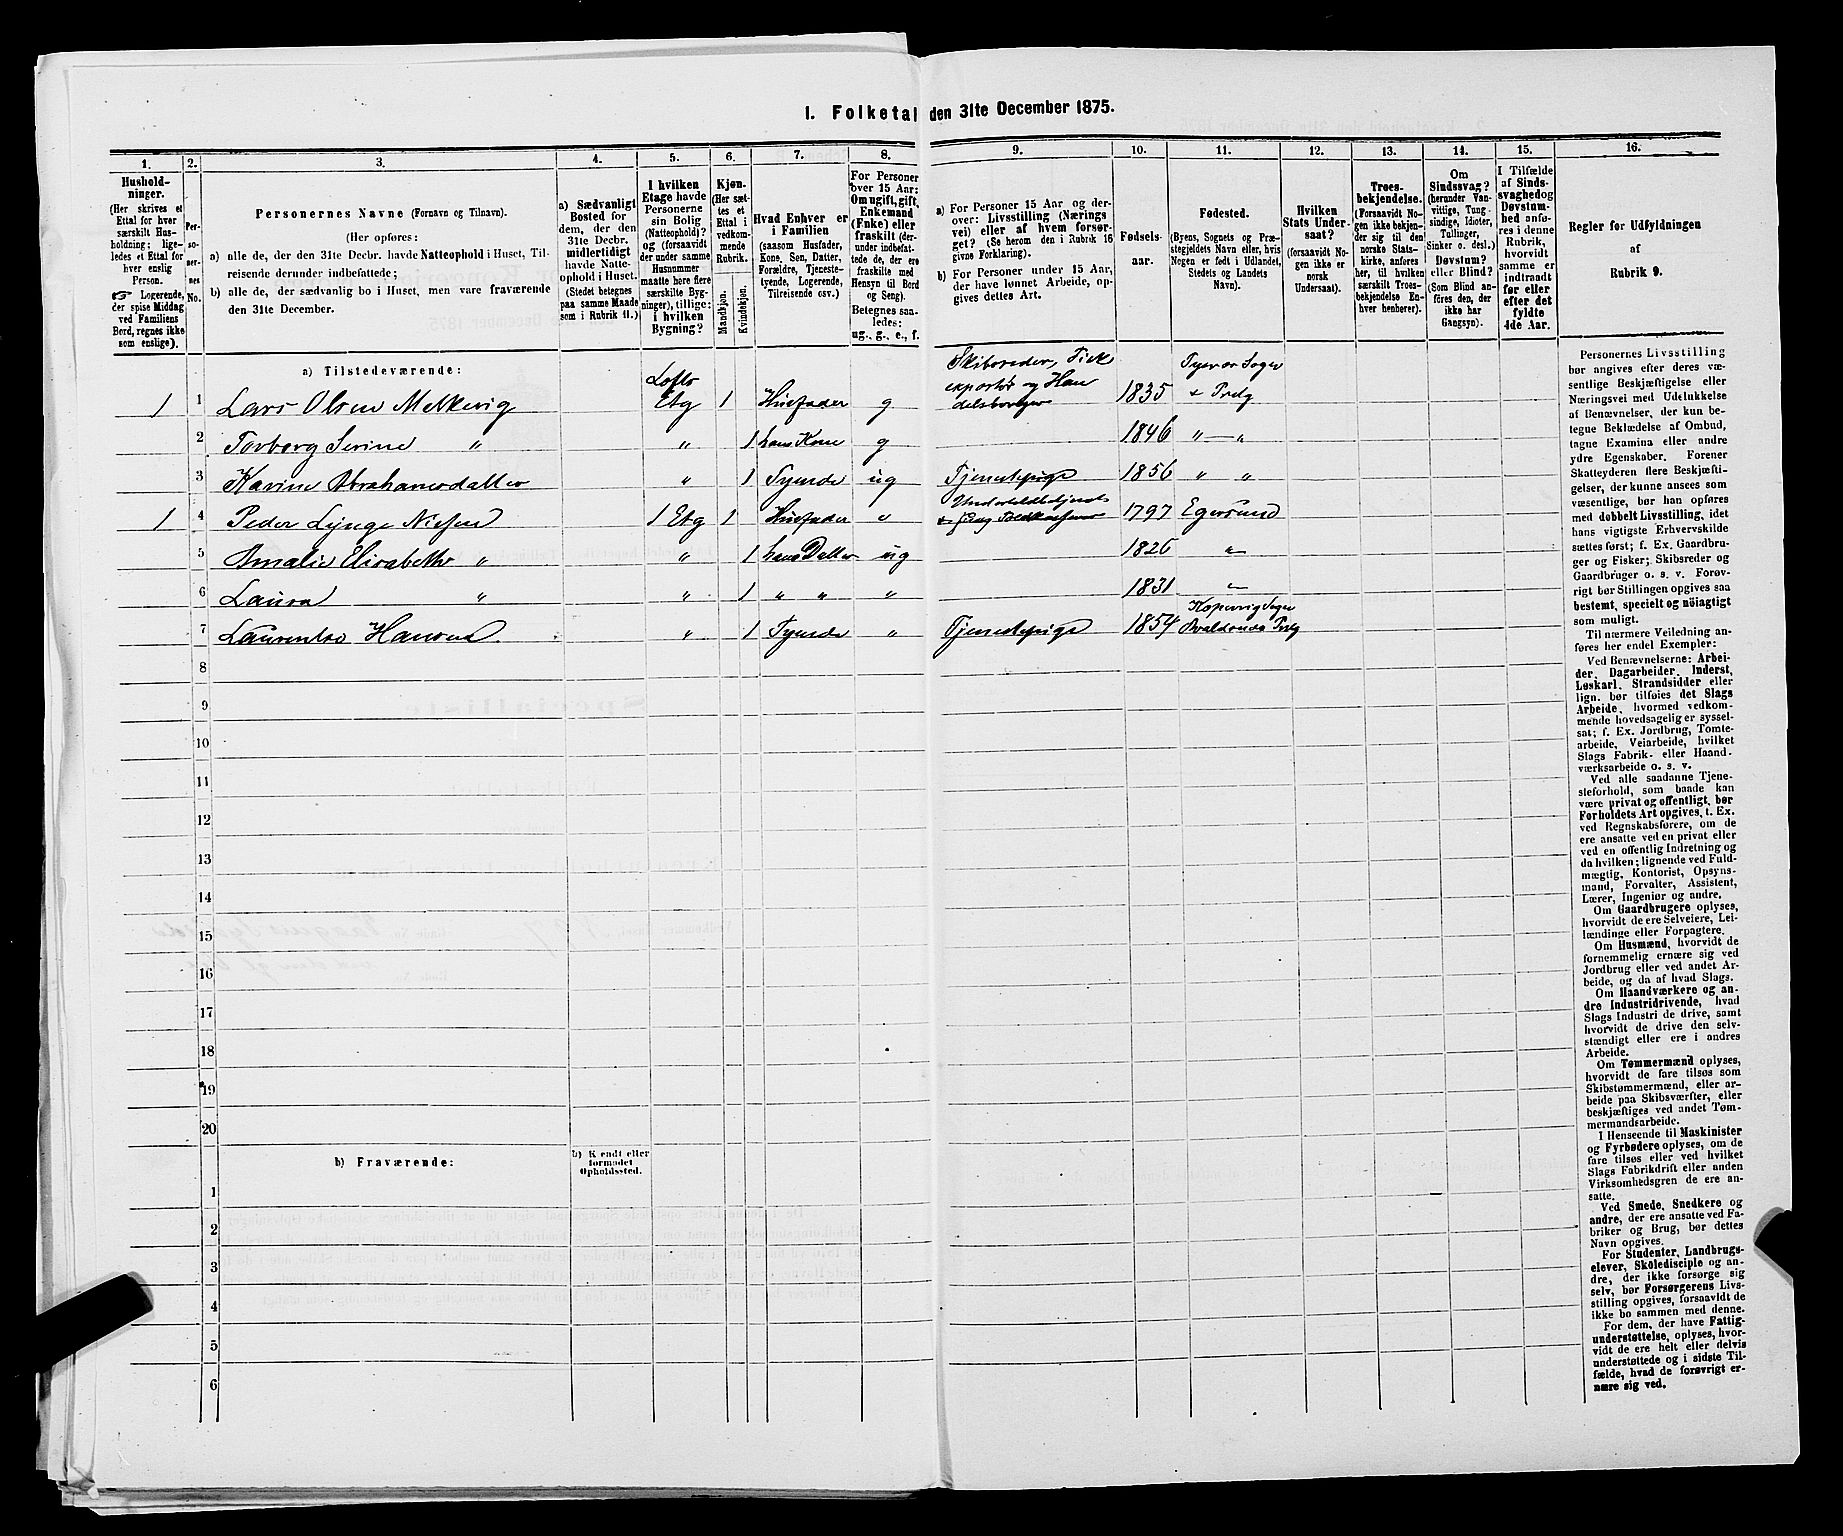 I. Folketal den 31te December 1875.
1. 2. 3. 4. 5. 6. 7. 8. 9. 10. 11. 12. 13. 14. 15. 16.
Hushold-
ninger.
(Her skrives et
Ettal for hver
særskilt Hus-
holdning; lige-
ledes et Ettal for
hver enslig
Person.
☞ Logerende,
der spise Middag
ved Familiens
Bord, regnes ikke
som enslige).
Per-
so-
ner-
nes
No.
Personernes Navne (Fornavn og Tilnavn).
(Her opføres:
a) alle de, der den 31te Decbr. havde Natteophold i Huset, Til-
reisende derunder indbefattede;
b) alle de, der sædvanlig bo i Huset, men vare fraværende
den 31te December.
a) Sædvanligt
Bosted for
dem, der den
31te Decbr.
midlertidigt
havde Natte-
ophold i Huset.
(Stedet betegnes
paa samme Maade
som i Rubrik 11.)
I hvilken
Etage havde
Personerne
sin Bolig
(Natteophold)?
og (forsaavidt
der under samme
Husnummer
maatte høre flere
særskilte Byg-
ninger), tillige:
i hvilken
Bygning?
Kjøn.
(Her sæt-
tes et
Ettal i
vedkom-
mende
Rubrik.
Mandkjøn.
Kvindekjøn.
Hvad Enhver er
i Familien
(saasom Husfader,
Kone, Søn, Datter,
Forældre, Tjeneste-
tyende, Logerende,
Tilreisende osv.)
For Personer
over 15 Aar:
Om ugift, gift,
Enkemand
(Enke) eller
fraskilt (der-
under indbefat-
tede de, der ere
fraskilte med
Hensyn til Bord
og Seng).
Betegnes saa-
ledes:
ug., g., e., f.
a) For Personer 15 Aar og der-
over: Livsstilling (Nærings
vei) eller af hvem forsør-
get? (Se herom den i Rubrik 16
givne Forklaring).
b) For Personer under 15 Aar,
der have lønnet Arbeide, op-
gives dettes Art.
Fødsels-
aar.
Fødested.
(Byens, Sognets og Præ-
stegjeldets Navn eller, hvis
Nogen er født i Udlandet,
Stedets og Landets
Navn).
Hvilken
Stats Under-
saat?
(forsaavidt No-
gen ikke er
norsk
Undersaat).
Troes-
bekjendelse.
(Forsaavidt No-
gen ikke bekjen-
der sig til den
norske Stats-
kirke, anføres
her, til hvilken
særskilt Troes-
bekjendelse En-
hver henhører).
Om
Sindssvag?
(herunder Van-
vittige, Tung-
sindige, Idioter,
Tullinger,
Sinker o. desl.)
Døvstum?
eller Blind?
(Som Blind an-
føres den, der
ikke har
Gangsyn).
I Tilfælde
af Sinds-
svaghed og
Døvstum-
hed anfø-
res i denne
Rubrik,
hvorvidt
samme er
indtraadt
før eller
efter det
fyldte
4de Aar.
Regler for Udfyldningen
af
Rubrik 9.
a) Tilstedeværende:
1 1 Lars Olsen Melkevig Lofts Etg 1 Husfader g Skibsreder, Handelsborger 1835 Tysvær Sogn + Prstg
2 Torborg Serine " " 1 hans Kone g 1846 " — "
3 Karine Abrahamsdatter " 1 Tyende ug Tjenestepige 1856 " "
1 4 Peder Lynge Nielsen 1 Etg 1 Husfader " 1797 Egersund
5 Amalie Elisabeth " " 1 hans Datter ug 1826 "
6 Laura " " 1 " " " 1831 "
7 Laurentse Hansen " 1 Tyende " Tjenestepige 1854 Kopervig Sogn Avaldsnæs Prstg
8
9
10
11
12
13
14
15
16
17
18
19
20
b) Fraværende:
b) Kjendt eller
formodet
Opholdssted.
1
2
3
4
5
6
Personernes Livsstilling
bør angives efter deres væ-
sentlige Beskjæftigelse eller
Næringsvei med Udelukkelse
af Benævnelser, der kun be-
tegne Beklædelse af Ombud,
tagne Examina eller andre
ydre Egenskaber. Forener
Skatteyderen flere Beskjæfti-
gelser, der kunne ansees som
væsentlige, bør han opføres
med dobbelt Livsstilling, idet
hans vigtigste Erhvervskilde
sættes først; f. Ex. Gaardbru-
ger og Fisker; Skibsreder og
Gaardbruger o. s. v. Forøv-
rigt bør Stillingen opgives saa
bestemt, specielt og nøiagtigt
som muligt.
Til nærmere Veiledning an-
føres her endel Exempler:
Ved Benævnelserne: Arbei-
der, Dagarbeider, Inderst,
Løskarl, Strandsidder eller
lign. bør tilføies det Slags
Arbeide, hvormed vedkom-
mende hovedsagelig er syssel-
sat; f. Ex. Jordbrug, Tomte-
arbeide, Veiarbeide, hvilket
Slags Fabrik- eller Haand-
værksarbeide o. s. v.
Ved alle saadanne Tjene-
steforhold, som baade kan
være privat og offentligt, bør
Forholdets Art opgives, t. Ex.
ved Regnskabsførere, om de
ere ansatte ved en privat eller
ved en offentlig Indretning og
da hvilken; lignende ved Fuld-
mægtig, Kontorist, Opsyns-
mand, Forvalter, Assistent,
Lærer, Ingeniør og andre.
Om Gaardbrugere oplyses,
hvorvidt de ere Selveiere, Lei-
lændinge eller Forpagtere.
Om Husmænd, hvorvidt de
fornemmelig ernære sig ved
Jordbrug eller ved andet Ar-
beide, og da af hvad Slags.
Om Haandværkere og an-
dre Industridrivende, hvad
Slags Industri de drive, samt
hvorvidt de drive den selv-
stændigt eller ere i andres
Arbeide.
Om Tømmermænd oplyses,
hvorvidt de fare tilsøs som
Skibstømmermænd, eller ar-
beide paa Skibsværfter, eller
beskjæftiges ved andet Tøm-
mermandsarbeide.
I Henseende til Maskinister
og Fyrbødere oplyses, om de
fare tilsøs eller ved hvilket
Slags Fabrikdrift eller anden
Virksomhedsgren de ere an-
satte.
Ved Smede, Snedkere og
andre, der ere ansatte ved Fa-
briker og Brug, bør dettes
Navn opgives.
For Studenter, Landbrugs-
elever, Skoledisciple og an-
dre, der ikke forsørge sig
selv, bør Forsørgerens Livs-
stilling opgives, forsaavidt de
ikke bo sammen med denne.
For dem, der have Fattig-
understøttelse, oplyses, hvor-
vidt de ere helt eller delvis
understøttede og i sidste Til-
fælde, hvad de forøvrigt er-
nære sig ved.